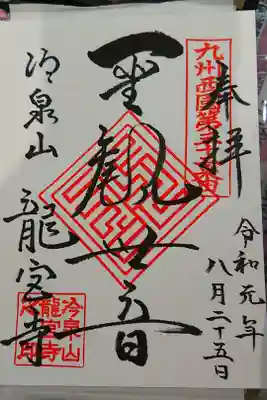 奉拝
九州西国第三十三番
令和元年
八月二十五日
聖観世音
冷泉山
龍宮寺
冷泉山
龍宮寺